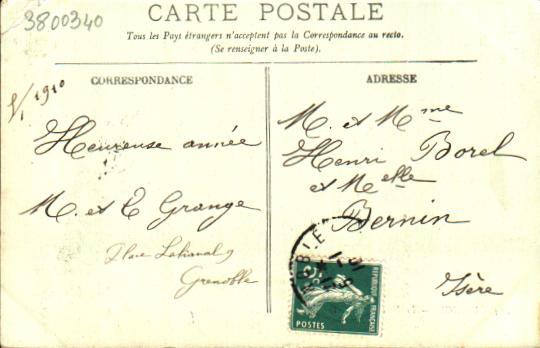 3800340
CARTE POSTALE
Tous les Pays étrangers n'acceptent pas la Correspondance au recto.
(Se renseigner à la Poste).
CORRESPONDANCE
1/1 1910
Heureuse année
M. et E Grange
Place Lakanal 9
Grenoble
ADRESSE
M. et Mme
Henri Borel
et Melle
Bernin
Isère
5
REPUBLIQUE FRANÇAISE
POSTES